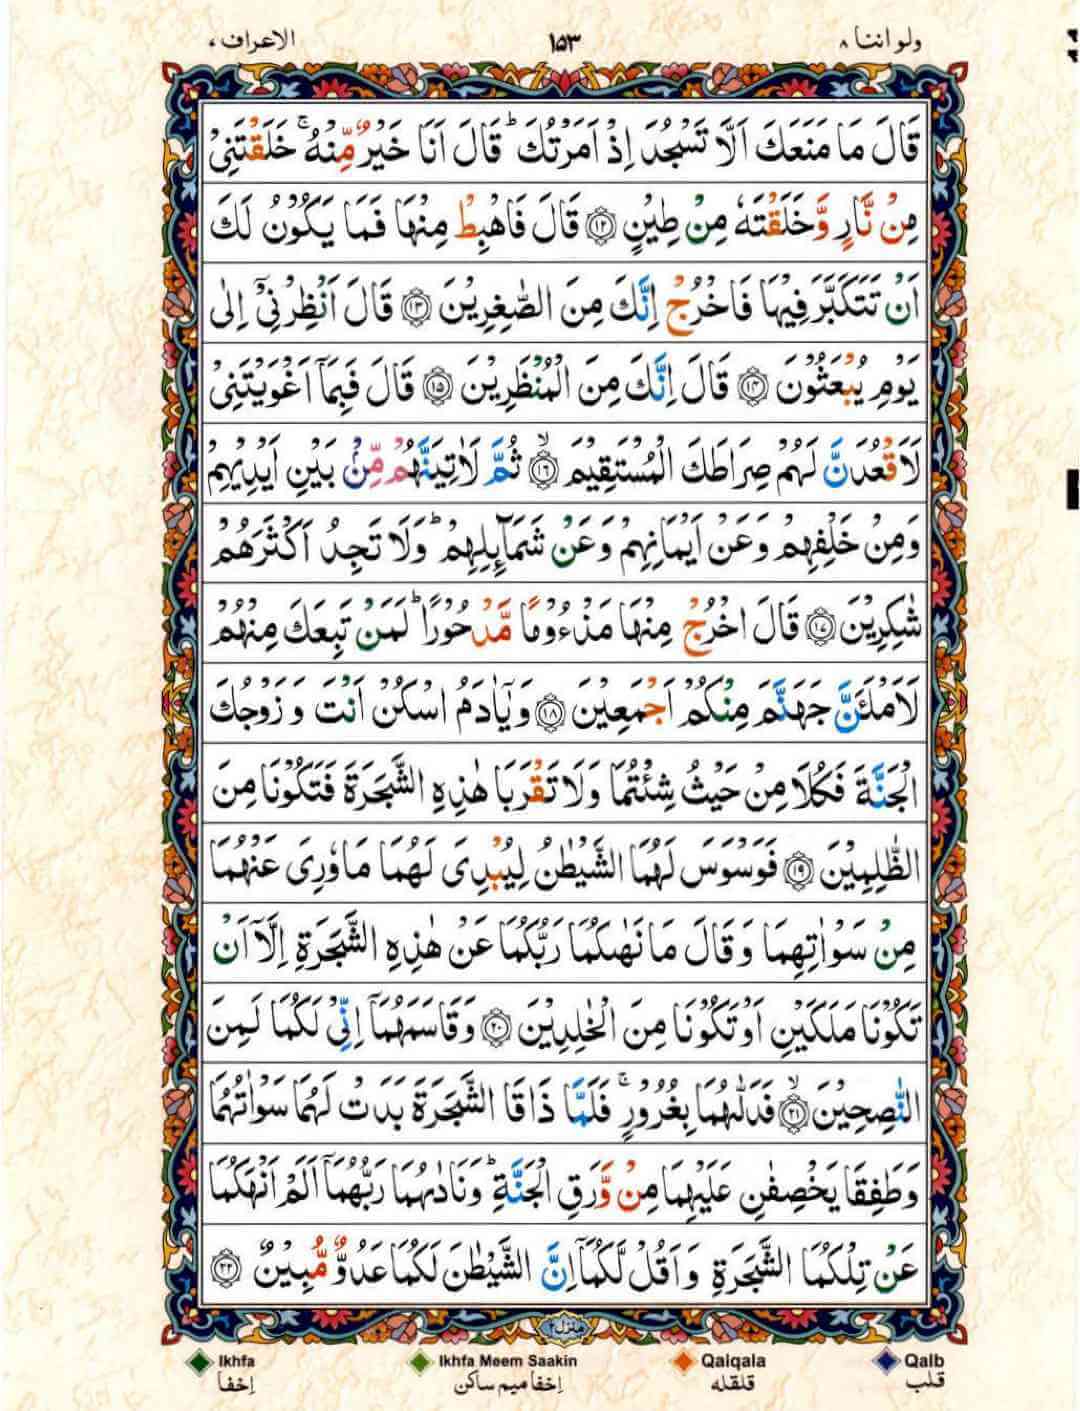 ولو اننا ۸
۱۵۳
الاعراف ۷
قَالَ مَا مَنَعَكَ اَلَّا تَسْجُدَ اِذْ اَمَرْتُكَ ؕ قَالَ اَنَا خَيْرٌ مِّنْهُ ۚ خَلَقْتَنِىْ
مِنْ نَّارٍ وَّ خَلَقْتَهٗ مِنْ طِيْنٍ ۝۱۲ قَالَ فَاهْبِطْ مِنْهَا فَمَا يَكُوْنُ لَكَ
اَنْ تَتَكَبَّرَ فِيْهَا فَاخْرُجْ اِنَّكَ مِنَ الصّٰغِرِيْنَ ۝۱۳ قَالَ اَنْظِرْنِىْۤ اِلٰى
يَوْمِ يُبْعَثُوْنَ ۝۱۴ قَالَ اِنَّكَ مِنَ الْمُنْظَرِيْنَ ۝۱۵ قَالَ فَبِمَاۤ اَغْوَيْتَنِىْ
لَاَقْعُدَنَّ لَهُمْ صِرَاطَكَ الْمُسْتَقِيْمَ ۙ۝۱۶ ثُمَّ لَاٰتِيَنَّهُمْ مِّنْۢ بَيْنِ اَيْدِيْهِمْ
وَمِنْ خَلْفِهِمْ وَعَنْ اَيْمَانِهِمْ وَعَنْ شَمَآىِٕلِهِمْ ؕ وَلَا تَجِدُ اَكْثَرَهُمْ
شٰكِرِيْنَ ۝۱۷ قَالَ اخْرُجْ مِنْهَا مَذْءُوْمًا مَّدْحُوْرًا ؕ لَمَنْ تَبِعَكَ مِنْهُمْ
لَاَمْلَـَٔنَّ جَهَنَّمَ مِنْكُمْ اَجْمَعِيْنَ ۝۱۸ وَ يٰۤاٰدَمُ اسْكُنْ اَنْتَ وَ زَوْجُكَ
الْجَنَّةَ فَكُلَا مِنْ حَيْثُ شِئْتُمَا وَلَا تَقْرَبَا هٰذِهِ الشَّجَرَةَ فَتَكُوْنَا مِنَ
الظّٰلِمِيْنَ ۝۱۹ فَوَسْوَسَ لَهُمَا الشَّيْطٰنُ لِيُبْدِىَ لَهُمَا مَا وٗرِىَ عَنْهُمَا
مِنْ سَوْاٰتِهِمَا وَ قَالَ مَا نَهٰىكُمَا رَبُّكُمَا عَنْ هٰذِهِ الشَّجَرَةِ اِلَّاۤ اَنْ
تَكُوْنَا مَلَكَيْنِ اَوْ تَكُوْنَا مِنَ الْخٰلِدِيْنَ ۝۲۰ وَ قَاسَمَهُمَاۤ اِنِّىْ لَكُمَا لَمِنَ
النّٰصِحِيْنَ ۙ۝۲۱ فَدَلّٰىهُمَا بِغُرُوْرٍ ۚ فَلَمَّا ذَاقَا الشَّجَرَةَ بَدَتْ لَهُمَا سَوْاٰتُهُمَا
وَ طَفِقَا يَخْصِفٰنِ عَلَيْهِمَا مِنْ وَّرَقِ الْجَنَّةِ ؕ وَ نَادٰىهُمَا رَبُّهُمَاۤ اَلَمْ اَنْهَكُمَا
عَنْ تِلْكُمَا الشَّجَرَةِ وَ اَقُلْ لَّكُمَاۤ اِنَّ الشَّيْطٰنَ لَكُمَا عَدُوٌّ مُّبِيْنٌ ۝۲۲
منزل ۲
Ikhfa Ikhfa Meem Saakin Qalqala Qalb
اِخفا اِخفا میم ساکن قلقله قلب